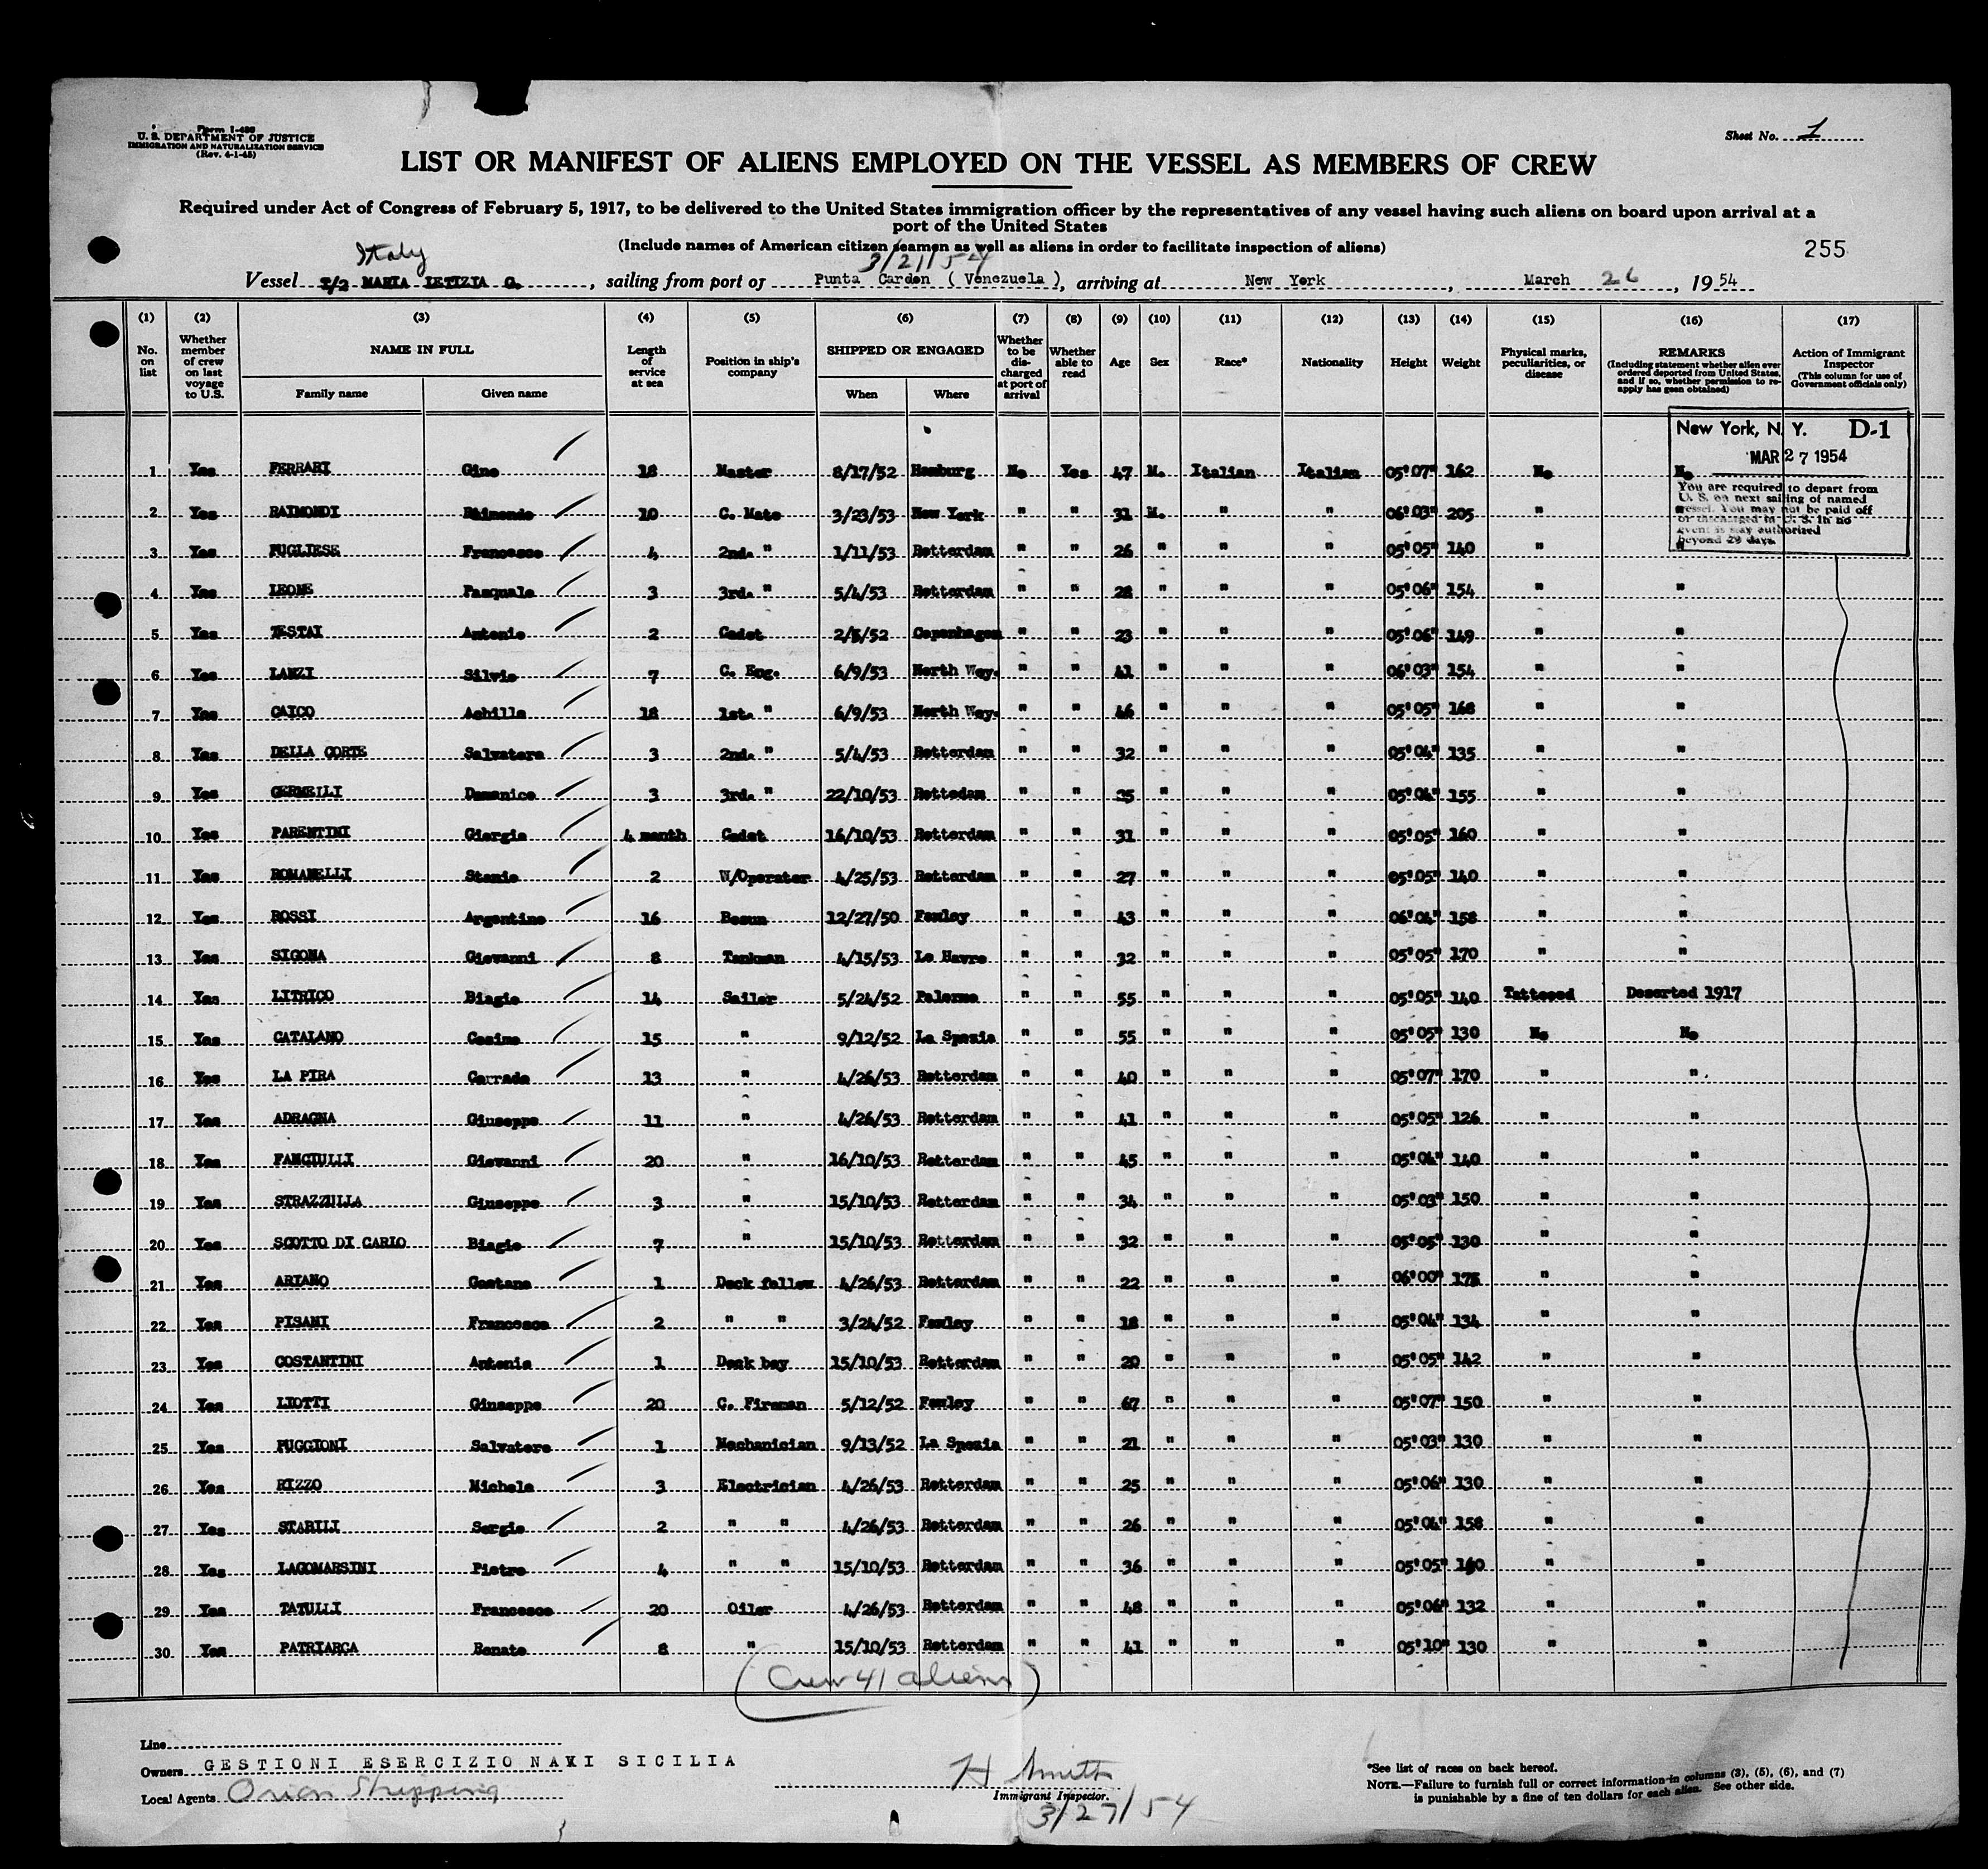 Form I-480
U. S. DEPARTMENT OF JUSTICE
IMMIGRATION AND NATURALIZATION SERVICE
(Rev. 4-1-45)
Sheet No. 1
LIST OR MANIFEST OF ALIENS EMPLOYED ON THE VESSEL AS MEMBERS OF CREW
Required under Act of Congress of February 5, 1917, to be delivered to the United States immigration officer by the representatives of any vessel having such aliens on board upon arrival at a
port of the United States
(Include names of American citizen seamen as well as aliens in order to facilitate inspection of aliens)
255
Italy 3/21/54
Vessel T/2 MARIA LETIZIA G., sailing from port of Punta Cardon ( Venezuela ), arriving at New York, March 26, 1954
(1) (2) (3) (4) (5) (6) (7) (8) (9) (10) (11) (12) (13) (14) (15) (16) (17)
No. on list Whether member of crew on last voyage to U.S. NAME IN FULL Family name Given name Length of service at sea Position in ship's company SHIPPED OR ENGAGED When Where Whether to be discharged at port of arrival Whether able to read Age Sex Race* Nationality Height Weight Physical marks, peculiarities, or disease REMARKS (Including statement whether alien ever ordered deported from United States, and if so, whether permission to re-apply has been obtained) Action of Immigrant Inspector (This column for use of Government officials only)
New York, N. Y. D-1
MAR 27 1954
You are required to depart from
U. S. on next sailing of named
vessel. You may not be paid off
or discharged in U. S. In no
event is stay authorized
beyond 29 days.
1 Yes FERRARI Gino 18 Master 8/17/52 Hamburg No Yes 47 M. Italian Italian 05'07" 162 No No
2 Yes RAIMONDI Raimondo 10 C. Mate 3/23/53 New York " " 31 M. " " 06'03" 205 " "
3 Yes PUGLIESE Francesco 4 2nd. " 1/11/53 Rotterdam " " 26 " " " 05'05" 140 " "
4 Yes LEONE Pasquale 3 3rd. " 5/4/53 Rotterdam " " 28 " " " 05'06" 154 " "
5 Yes TESTAI Antonio 2 Cadet 2/5/52 Copenhagen " " 23 " " " 05'06" 149 " "
6 Yes LANZI Silvio 7 C. Eng. 6/9/53 North Way. " " 41 " " " 06'03" 154 " "
7 Yes CAICO Achille 18 1st. " 6/9/53 North Way. " " 46 " " " 05'05" 168 " "
8 Yes DELLA CORTE Salvatore 3 2nd. " 5/4/53 Rotterdam " " 32 " " " 05'04" 135 " "
9 Yes GERMEILI Domenico 3 3rd. " 22/10/53 Rottedam " " 35 " " " 05'04" 155 " "
10 Yes PARENTINI Giorgio 4 month Cadet 16/10/53 Rotterdam " " 31 " " " 05'05" 160 " "
11 Yes ROMANELLI Stenio 2 W/Operator 4/25/53 Rotterdam " " 27 " " " 05'05" 140 " "
12 Yes ROSSI Argentino 16 Bosun 12/27/50 Fawley " " 43 " " " 06'04" 158 " "
13 Yes SIGONA Giovanni 8 Tankman 4/15/53 Le Havre " " 32 " " " 05'05" 170 " "
14 Yes LITRICO Biagio 14 Sailor 5/24/52 Palermo " " 55 " " " 05'05" 140 Tattooed Deserted 1917
15 Yes CATALANO Cosimo 15 " 9/12/52 La Spezia " " 55 " " " 05'05" 130 No No
16 Yes LA PIRA Corrado 13 " 4/26/53 Rotterdam " " 40 " " " 05'07" 170 " "
17 Yes ADRAGNA Giuseppe 11 " 4/26/53 Rotterdam " " 41 " " " 05'05" 126 " "
18 Yes FANCIULLI Giovanni 20 " 16/10/53 Rotterdam " " 45 " " " 05'04" 140 " "
19 Yes STRAZZULLA Giuseppe 3 " 15/10/53 Rotterdam " " 34 " " " 05'03" 150 " "
20 Yes SCOTTO DI CARLO Biagio 7 " 15/10/53 Rotterdam " " 32 " " " 05'05" 130 " "
21 Yes ARIANO Gaetano 1 Deck fellow 4/26/53 Rotterdam " " 22 " " " 06'00" 175 " "
22 Yes PISANI Francesco 2 " " 3/24/52 Fawley " " 18 " " " 05'04" 134 " "
23 Yes COSTANTINI Antonio 1 Deck boy 15/10/53 Rotterdam " " 20 " " " 05'05" 142 " "
24 Yes LIOTTI Giuseppe 20 C. Fireman 5/12/52 Fawley " " 67 " " " 05'07" 150 " "
25 Yes PUGGIONI Salvatore 1 Mechanician 9/13/52 La Spezia " " 21 " " " 05'03" 130 " "
26 Yes RIZZO Michele 3 Electrician 4/26/53 Rotterdam " " 25 " " " 05'06" 130 " "
27 Yes STABILI Sergio 2 " " 4/26/53 Rotterdam " " 26 " " " 05'04" 158 " "
28 Yes LAGOMARSINI Pietro 4 " " 15/10/53 Rotterdam " " 36 " " " 05'05" 140 " "
29 Yes TATULLI Francesco 20 Oiler 4/26/53 Rotterdam " " 48 " " " 05'06" 132 " "
30 Yes PATRIARCA Renato 8 " 15/10/53 Rotterdam " " 41 " " " 05'10" 130 " "
(Crew 41 aliens)
Line
Owners GESTIONI ESERCIZIO NAVI SICILIA
Local Agents Orion Shipping
H Smith
Immigrant Inspector.
3/27/54
*See list of races on back hereof.
NOTE.—Failure to furnish full or correct information in columns (3), (5), (6), and (7)
is punishable by a fine of ten dollars for each alien. See other side.